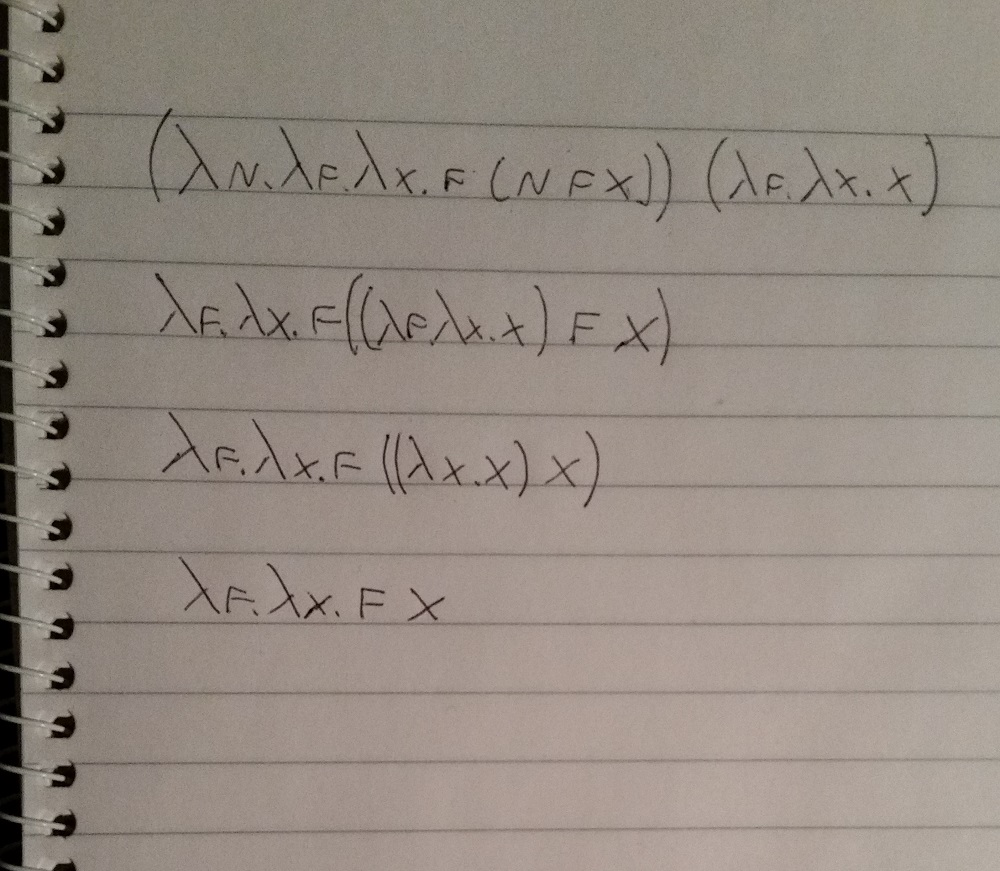 (λN.λF.λX.F (N F X)) (λF.λX.X)
λF.λX.F((λF.λX.X) F X)
λF.λX.F ((λX.X) X)
λF.λX.F X